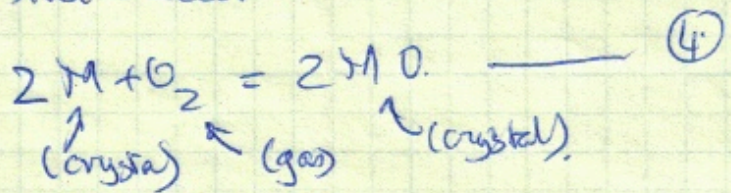 2M + O₂ = 2MO. ——— ④
(crystal) (gas) (crystal).